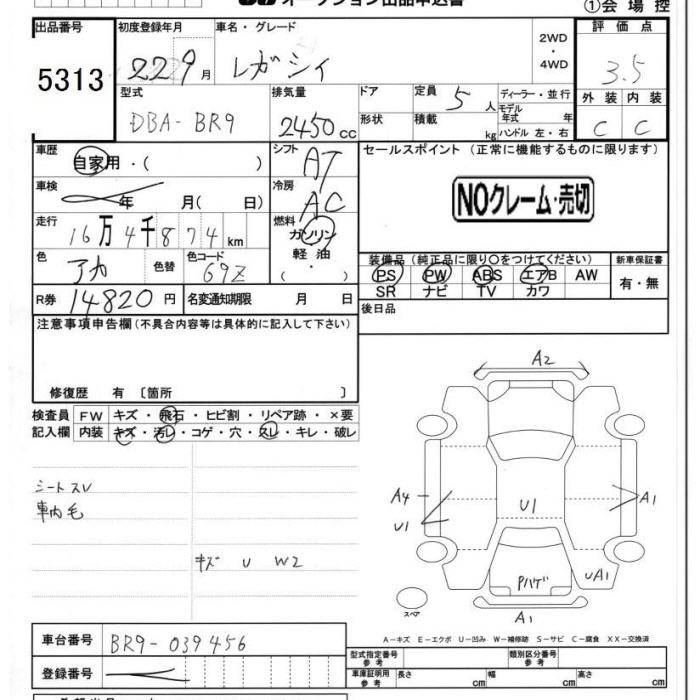 オークション出品申込書
①会場控
出品番号 初度登録年月 車名・グレード 評価点
5313 22 9月 レガシィ 2WD・4WD 3.5
型式 排気量 ドア 定員 5人 ディーラー・並行 外装 内装
DBA-BR9 2450cc 形状 積載 kg モデル年式 年 ハンドル 左・右 C C
車歴 自家用・( ) シフト AT セールスポイント(正常に機能するものに限ります)
車検 年 月( 日) 冷房 AC NOクレーム・売切
走行 16万4千874km 燃料 ガソリン
色 アカ 色替 色コード 69Z 軽油 ( ・ ) 装備品(純正品に限り○をつけてください) 新車保証書
PS PW ABS エアB AW 有・無
R券 14820円 名変通知期限 月 日 SR ナビ TV カワ
注意事項申告欄(不具合内容等は具体的に記入して下さい) 後日品
修復歴 有 〔箇所 〕
検査員 FW キズ・飛石・ヒビ割・リペア跡・×要
記入欄 内装 キズ・汚レ・コゲ・穴・スレ・キレ・破レ
シートスレ
車内毛
キズ U W2
A2
A4
U1
U1
A1
Pハゲ
UA1
スペア
A1
A-キズ E-エクボ U-凹み W-補修跡 S-サビ C-腐食 XX-交換済
車台番号 BR9-039456 型式指定番号 参考 類別区分番号 参考
登録番号 車庫証明用 参考 長さ cm 幅 cm 高さ cm